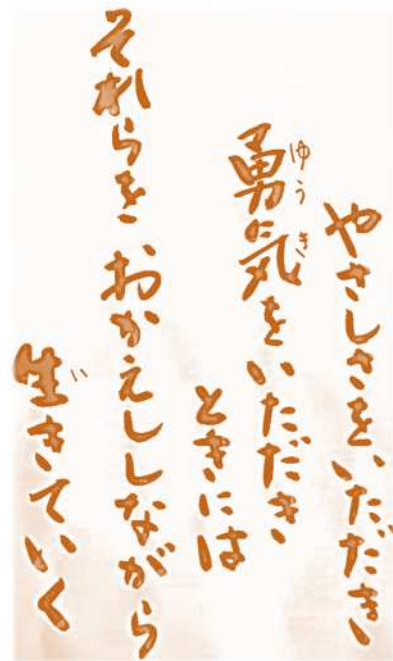 やさしさを、いただき
勇気をいただき
ときには
それらを おかえししながら
生きていく